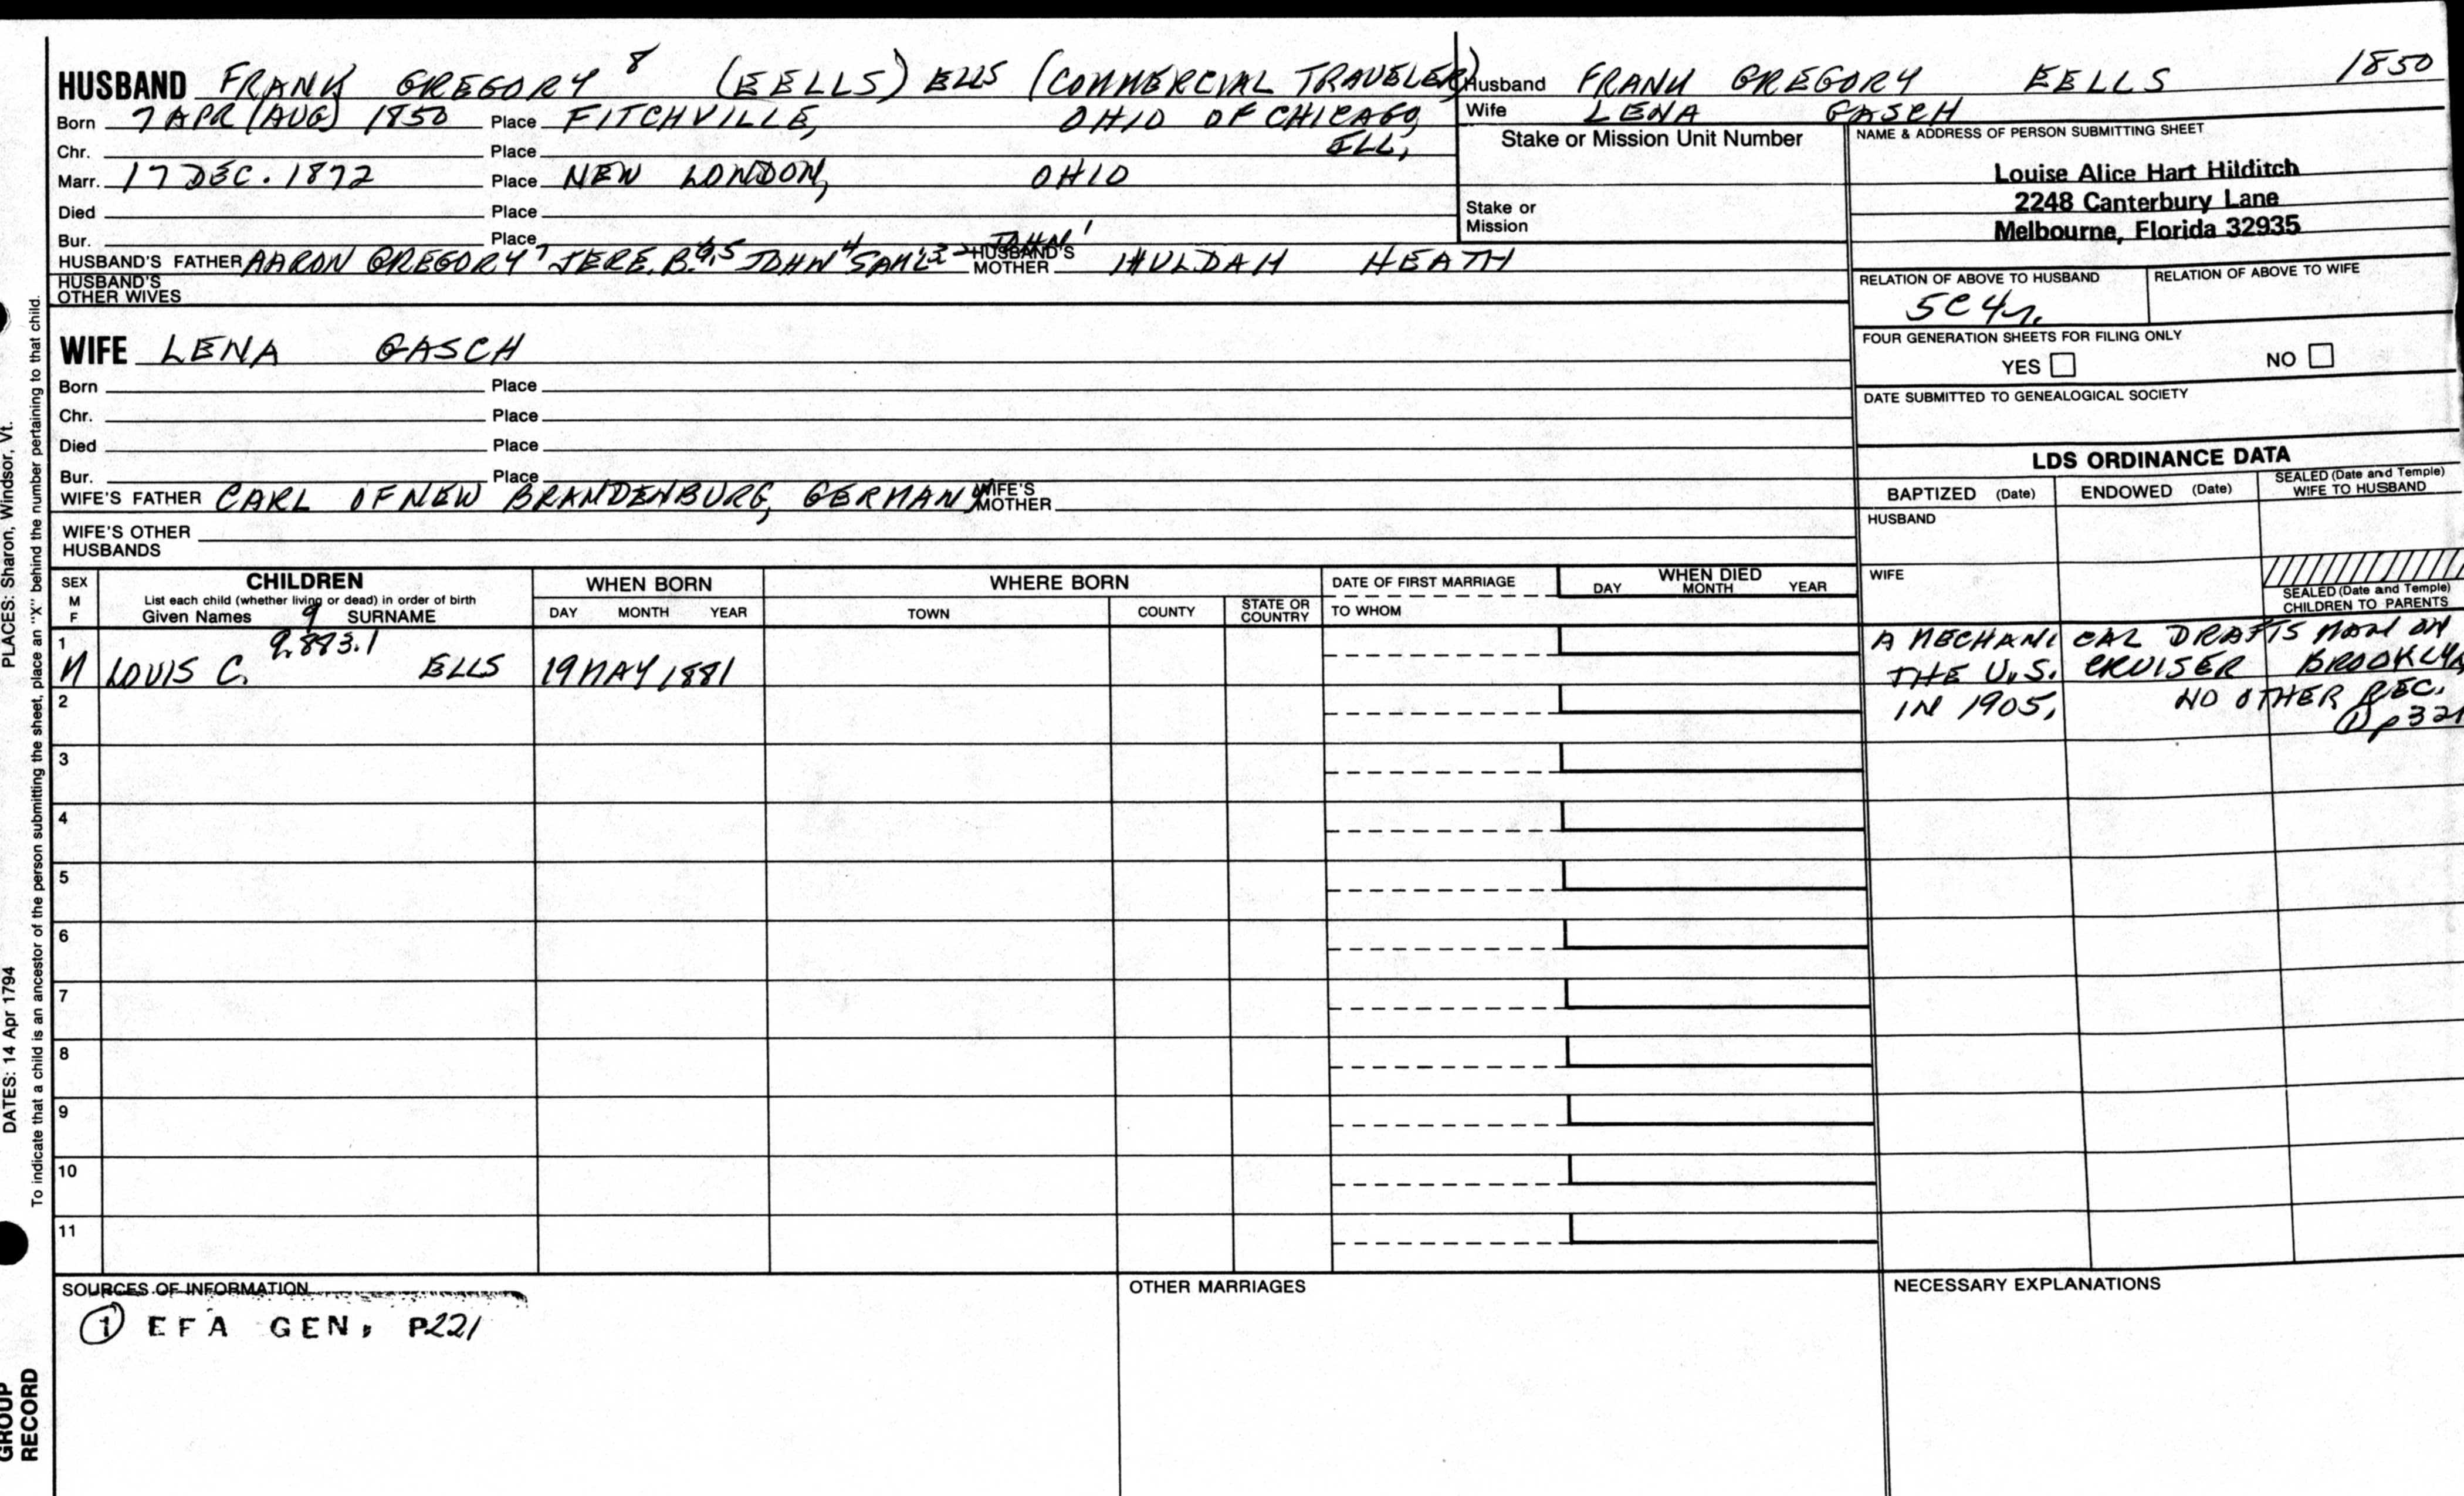 HUSBAND FRANK GREGORY 8 (EELLS) ELLS (COMMERCIAL TRAVELER)
Born 7 APR (AUG) 1850 Place FITCHVILLE, OHIO OF CHICAGO,
Chr. Place ILL,
Marr. 17 DEC. 1872 Place NEW LONDON, OHIO
Died Place
Bur. Place
HUSBAND'S FATHER AARON GREGORY 7 JERE. B. 6,5 JOHN 4 SAM'L 3 2 JOHN 1 HUSBAND'S MOTHER HULDAH HEATH
HUSBAND'S
OTHER WIVES
WIFE LENA GASCH
Born Place
Chr. Place
Died Place
Bur. Place
WIFE'S FATHER CARL OF NEW BRANDENBURG, GERMANY WIFE'S MOTHER
WIFE'S OTHER
HUSBANDS
Husband FRANK GREGORY EELLS 1850
Wife LENA GASCH
Stake or Mission Unit Number
Stake or
Mission
NAME & ADDRESS OF PERSON SUBMITTING SHEET
Louise Alice Hart Hilditch
2248 Canterbury Lane
Melbourne, Florida 32935
RELATION OF ABOVE TO HUSBAND RELATION OF ABOVE TO WIFE
5C4r.
FOUR GENERATION SHEETS FOR FILING ONLY
YES NO
DATE SUBMITTED TO GENEALOGICAL SOCIETY
LDS ORDINANCE DATA
BAPTIZED (Date) ENDOWED (Date) SEALED (Date and Temple) WIFE TO HUSBAND
HUSBAND
WIFE
SEALED (Date and Temple)
CHILDREN TO PARENTS
SEX M F CHILDREN WHEN BORN WHERE BORN DATE OF FIRST MARRIAGE WHEN DIED
List each child (whether living or dead) in order of birth
Given Names 9 SURNAME DAY MONTH YEAR TOWN COUNTY STATE OR COUNTRY TO WHOM DAY MONTH YEAR
1 9.883.1
M LOUIS C. ELLS 19 MAY 1881
A MECHANICAL DRAFTSMAN ON
THE U.S. CRUISER BROOKLYN
IN 1905, NO OTHER REC.
① p321
2
3
4
5
6
7
8
9
10
11
SOURCES OF INFORMATION
① EFA GEN, P221
OTHER MARRIAGES
NECESSARY EXPLANATIONS
PLACES: Sharon, Windsor, Vt.
DATES: 14 Apr 1794
To indicate that a child is an ancestor of the person submitting the sheet, place an "X" behind the number pertaining to that child.
GROUP
RECORD